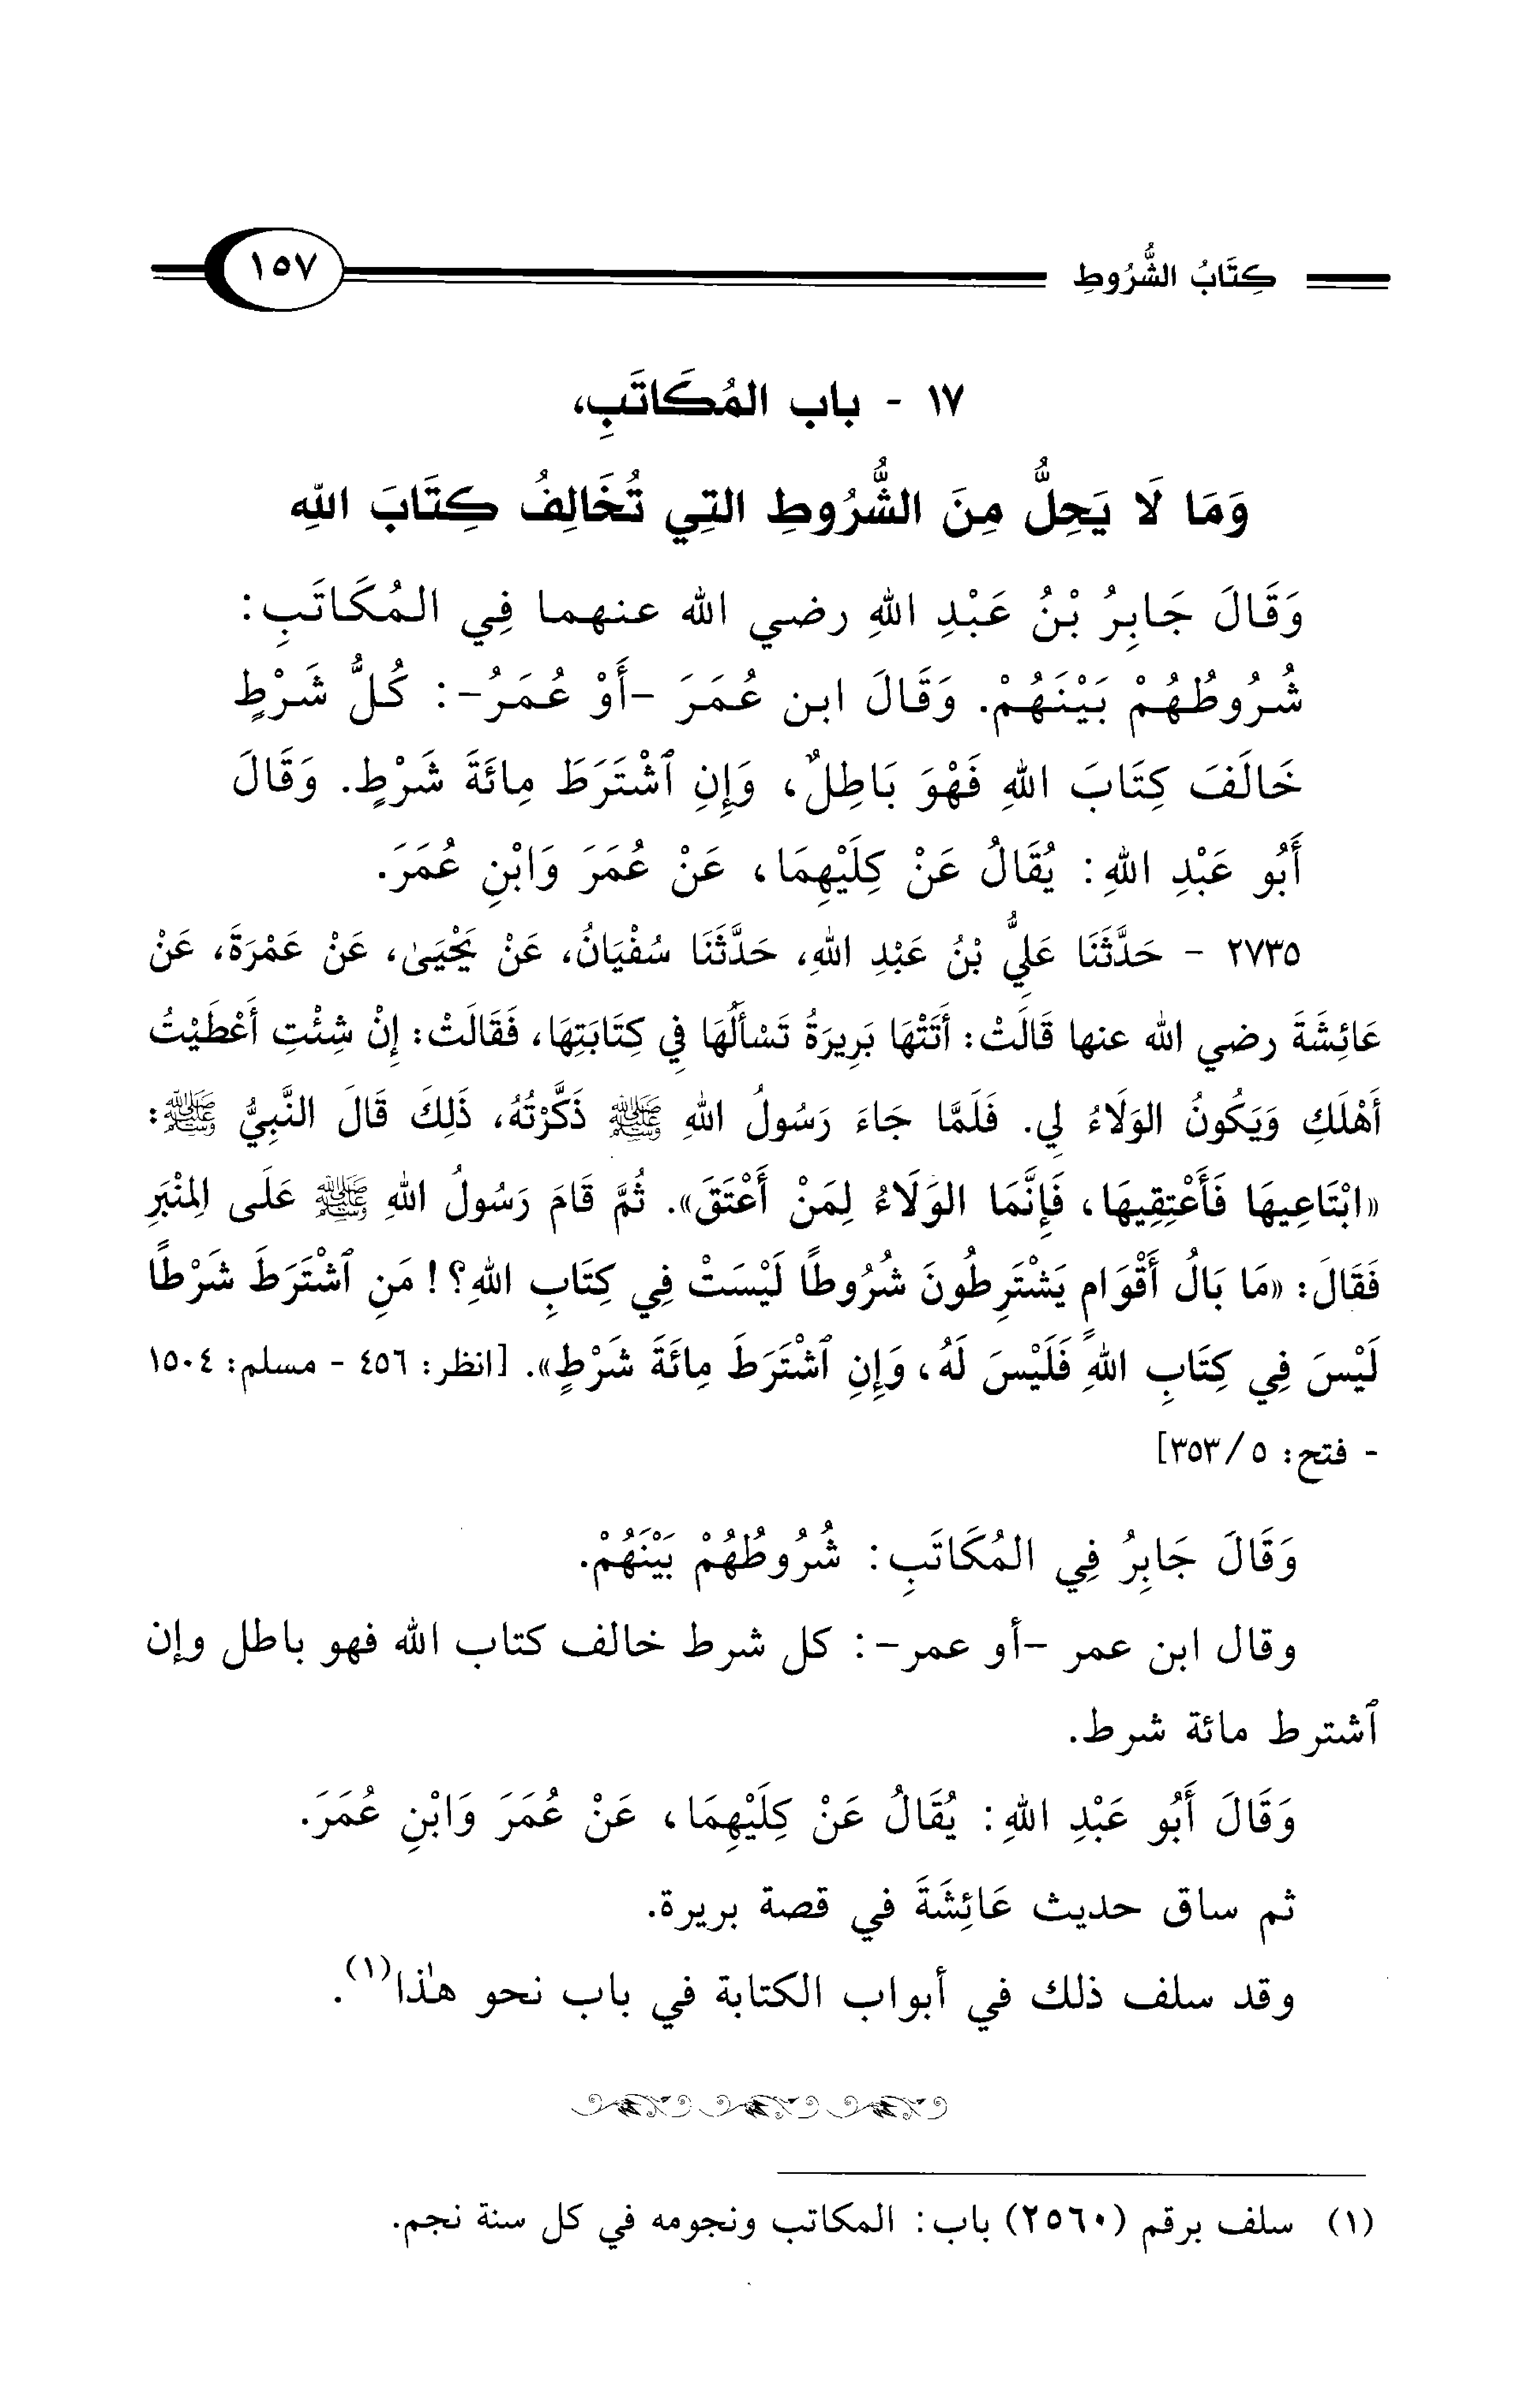 كِتَابُ الشُّرُوطِ ١٥٧
١٧ - باب المُكَاتَبِ،
وَمَا لَا يَحِلُّ مِنَ الشُّرُوطِ التِي تُخَالِفُ كِتَابَ اللهِ
وَقَالَ جَابِرُ بْنُ عَبْدِ اللهِ رضي الله عنهما فِي المُكَاتَبِ:
شُرُوطُهُمْ بَيْنَهُمْ. وَقَالَ ابن عُمَرَ -أَوْ عُمَرُ-: كُلُّ شَرْطٍ
خَالَفَ كِتَابَ اللهِ فَهْوَ بَاطِلٌ، وَإِنِ ٱشْتَرَطَ مِائَةَ شَرْطٍ. وَقَالَ
أَبُو عَبْدِ اللهِ: يُقَالُ عَنْ كِلَيْهِمَا، عَنْ عُمَرَ وَابْنِ عُمَرَ.
٢٧٣٥ - حَدَّثَنَا عَلِيُّ بْنُ عَبْدِ اللهِ، حَدَّثَنَا سُفْيَانُ، عَنْ يَحْيَىٰ، عَنْ عَمْرَةَ، عَنْ
عَائِشَةَ رضي الله عنها قَالَتْ: أَتَتْهَا بَرِيرَةُ تَسْأَلُهَا فِي كِتَابَتِهَا، فَقَالَتْ: إِنْ شِئْتِ أَعْطَيْتُ
أَهْلَكِ وَيَكُونُ الوَلَاءُ لِي. فَلَمَّا جَاءَ رَسُولُ اللهِ ﷺ ذَكَّرْتُهُ، ذَلِكَ قَالَ النَّبِيُّ ﷺ:
«ابْتَاعِيهَا فَأَعْتِقِيهَا، فَإِنَّمَا الوَلَاءُ لِمَنْ أَعْتَقَ». ثُمَّ قَامَ رَسُولُ اللهِ ﷺ عَلَى المِنْبَرِ
فَقَالَ: «مَا بَالُ أَقْوَامٍ يَشْتَرِطُونَ شُرُوطًا لَيْسَتْ فِي كِتَابِ اللهِ؟! مَنِ ٱشْتَرَطَ شَرْطًا
لَيْسَ فِي كِتَابِ اللهِ فَلَيْسَ لَهُ، وَإِنِ ٱشْتَرَطَ مِائَةَ شَرْطٍ». [انظر: ٤٥٦ - مسلم: ١٥٠٤
- فتح: ٥/ ٣٥٣]
وَقَالَ جَابِرُ فِي المُكَاتَبِ: شُرُوطُهُمْ بَيْنَهُمْ.
وقال ابن عمر -أو عمر-: كل شرط خالف كتاب الله فهو باطل وإن
ٱشترط مائة شرط.
وَقَالَ أَبُو عَبْدِ اللهِ: يُقَالُ عَنْ كِلَيْهِمَا، عَنْ عُمَرَ وَابْنِ عُمَرَ.
ثم ساق حديث عَائِشَةَ في قصة بريرة.
وقد سلف ذلك في أبواب الكتابة في باب نحو هٰذا(١).
(١) سلف برقم (٢٥٦٠) باب: المكاتب ونجومه في كل سنة نجم.